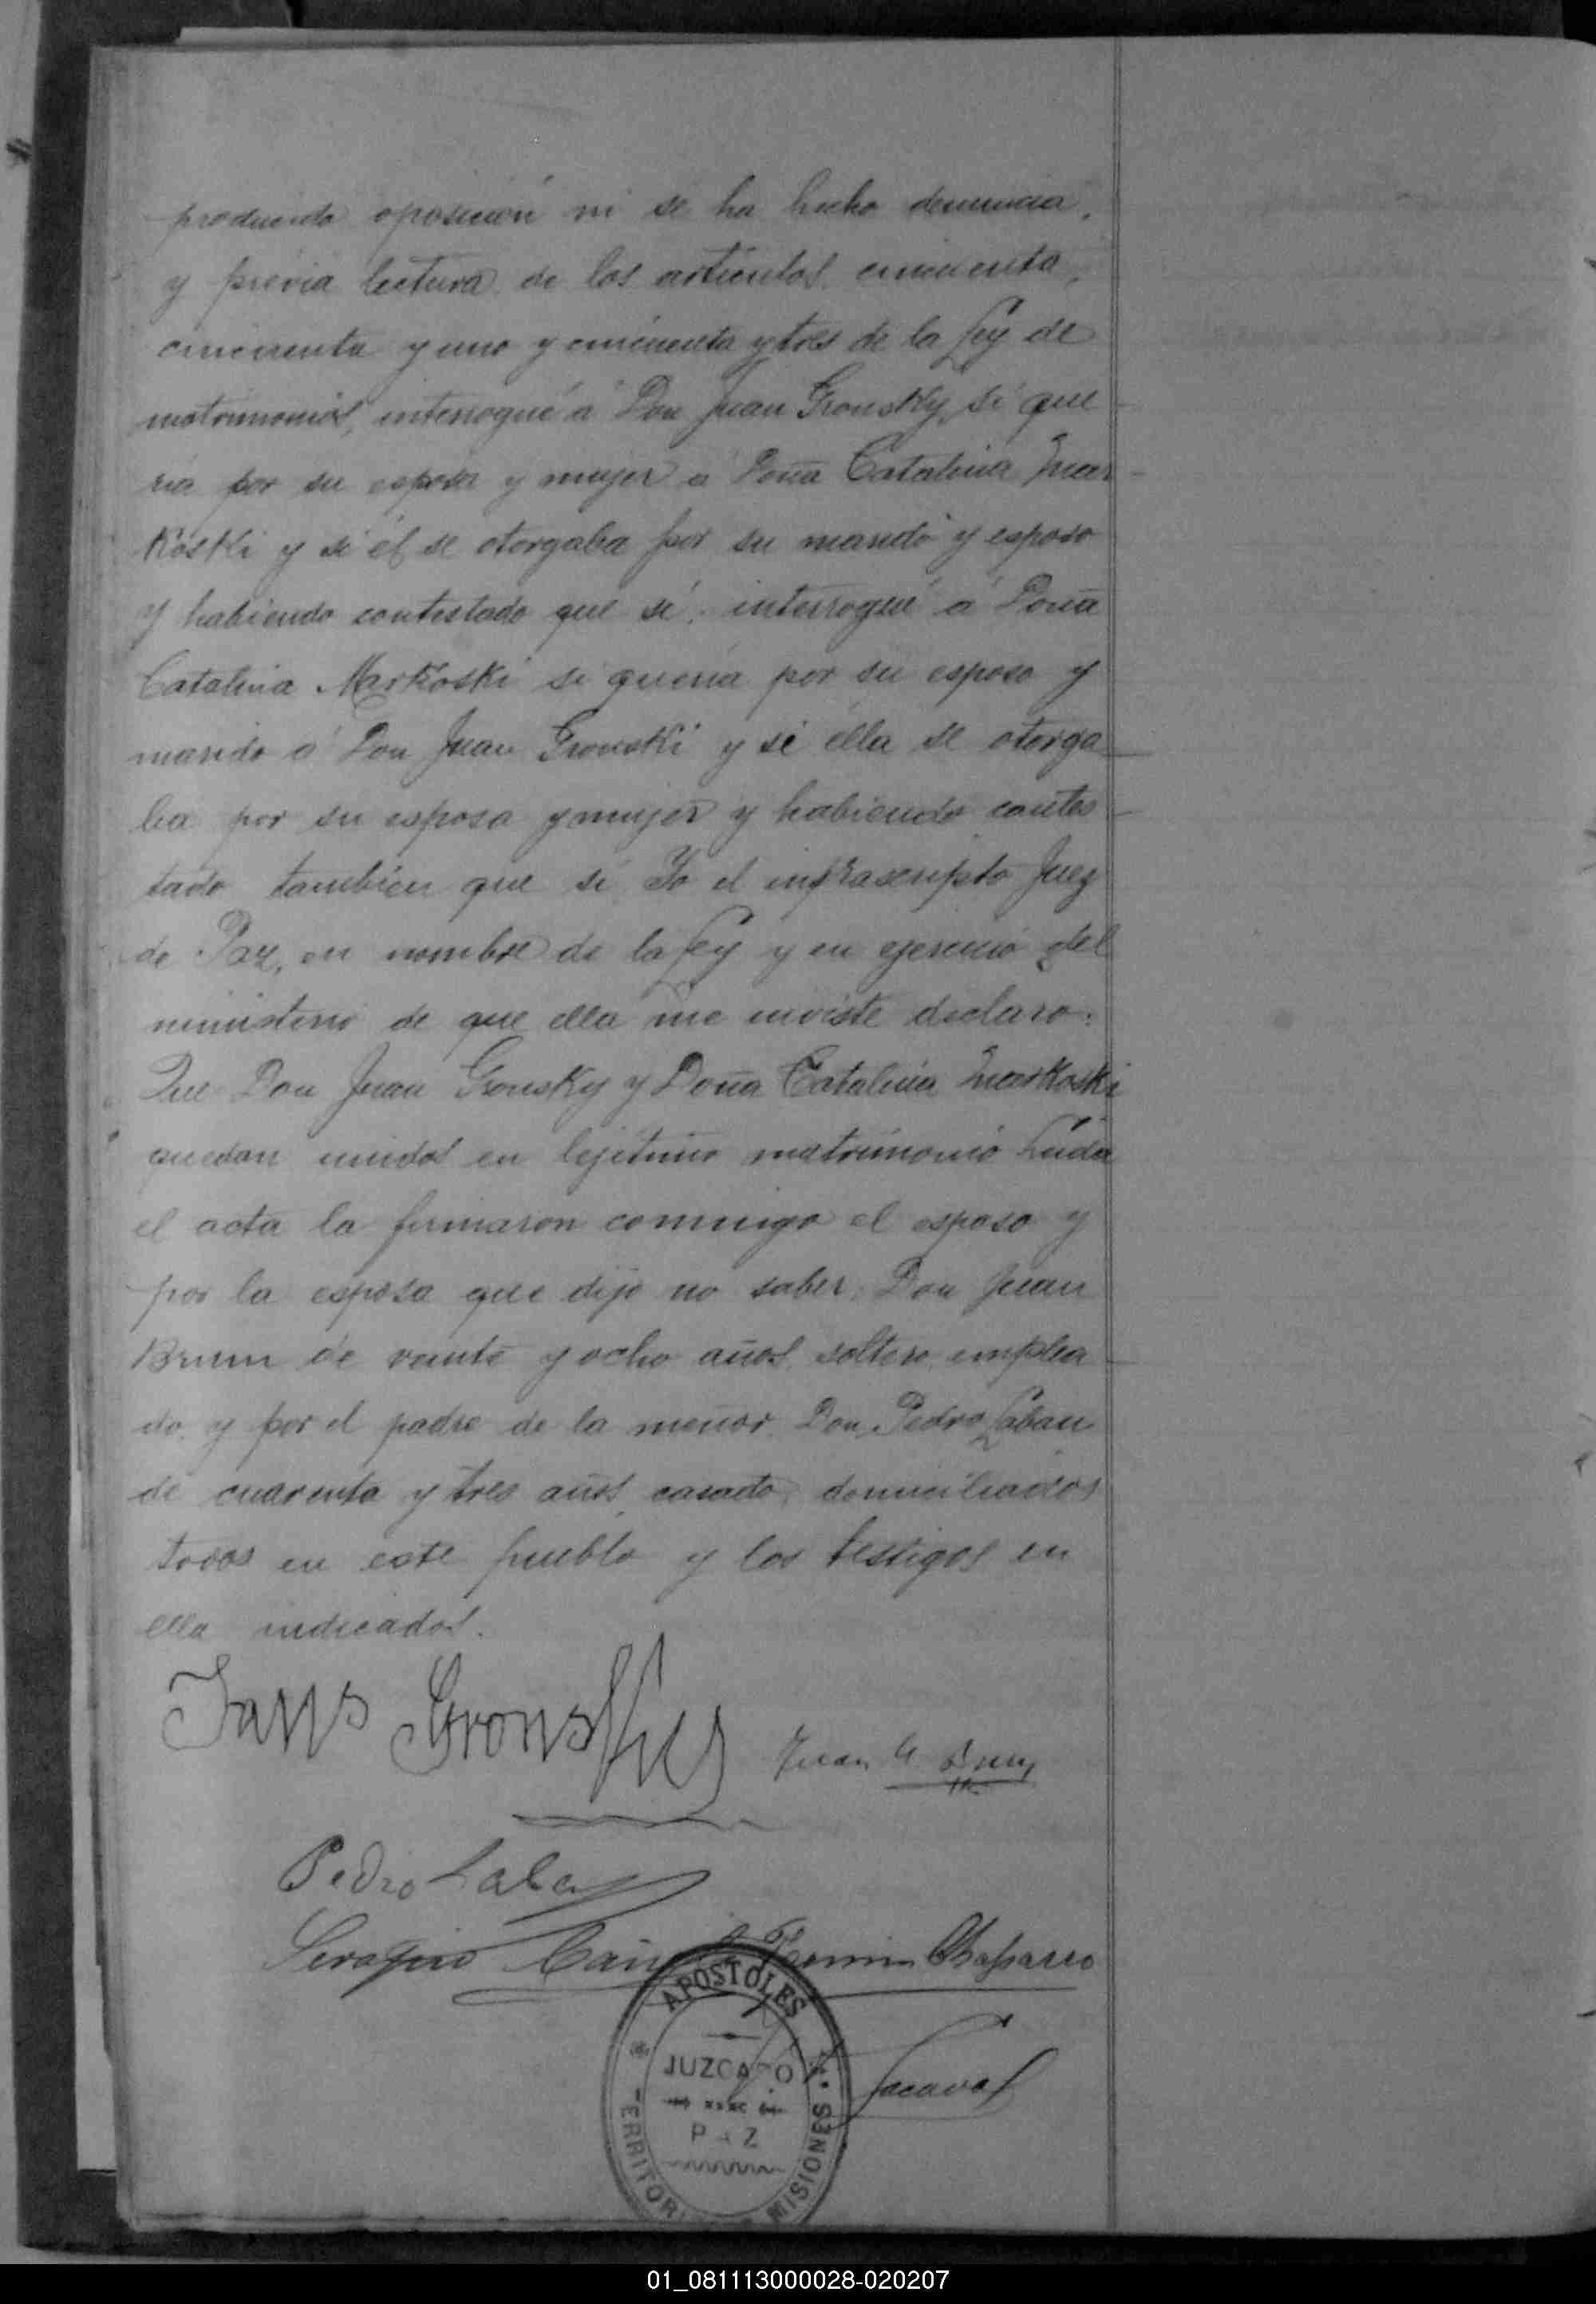 producido oposición ni se ha hecho denuncia,
y previa lectura de los artículos cincuenta,
cincuenta y uno y cincuenta y tres de la Ley de
matrimonios, interrogué á Don Juan Gronsky, si que
ria por su esposa y mujer á Doña Catalina Mar
Koski y si él se otorgaba por su marido y esposo
y habiendo contestado que sí, interrogué á Doña
Catalina Markoski si quería por su esposo y
marido á Don Juan Gronski y si ella se otorga
ba por su esposa y mujer y habiendo contes
tado tambien que si Yo el infrascripto Juez
de Paz, en nombre de la Ley y en ejercicio del
ministerio de que ella me inviste declaro:
Que Don Juan Gronsky y Doña Catalina Markoski
quedan unidos en lejitimo matrimonio Leida
el acta la firmaron conmigo el esposo y
por la esposa que dijo no saber, Don Juan
Brum de veinte y ocho años, soltero, emplea
do, y por el padre de la menor Don Pedro Laban
de cuarenta y tres años, casado, domiciliados
todos en este pueblo y los testigos en
ella indicados.
Gronsky Juan
Pedro Laban
Serafin Fermin Chaparro
APOSTOLES
JUZGADO
PAZ
MISIONES
01_081113000028-020207